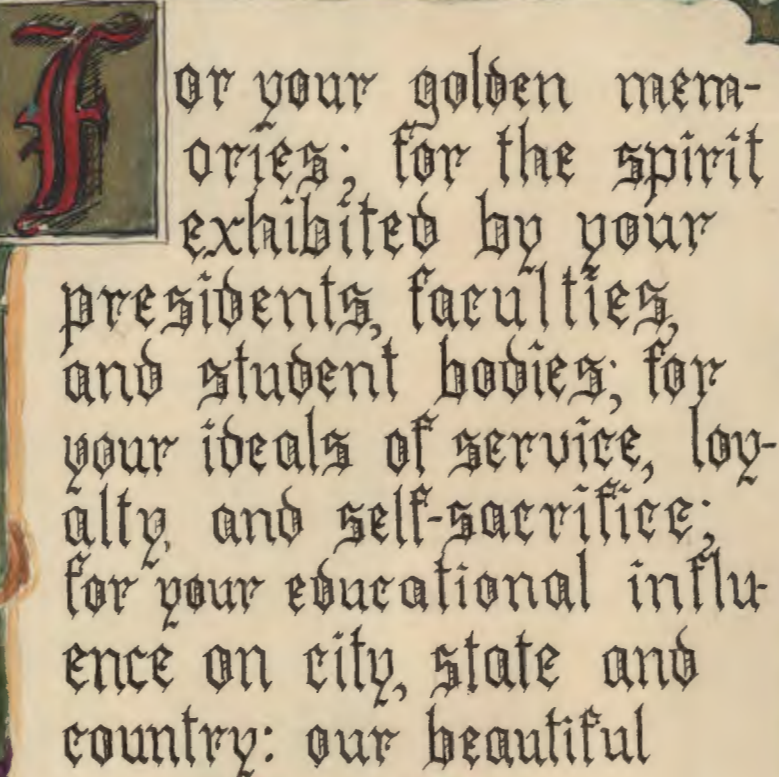 For your golden mem-
ories; for the spirit
exhibited by your
presidents, faculties,
and student bodies; for
your ideals of service, loy-
alty, and self-sacrifice;
for your educational influ-
ence on city, state and
country: our beautiful